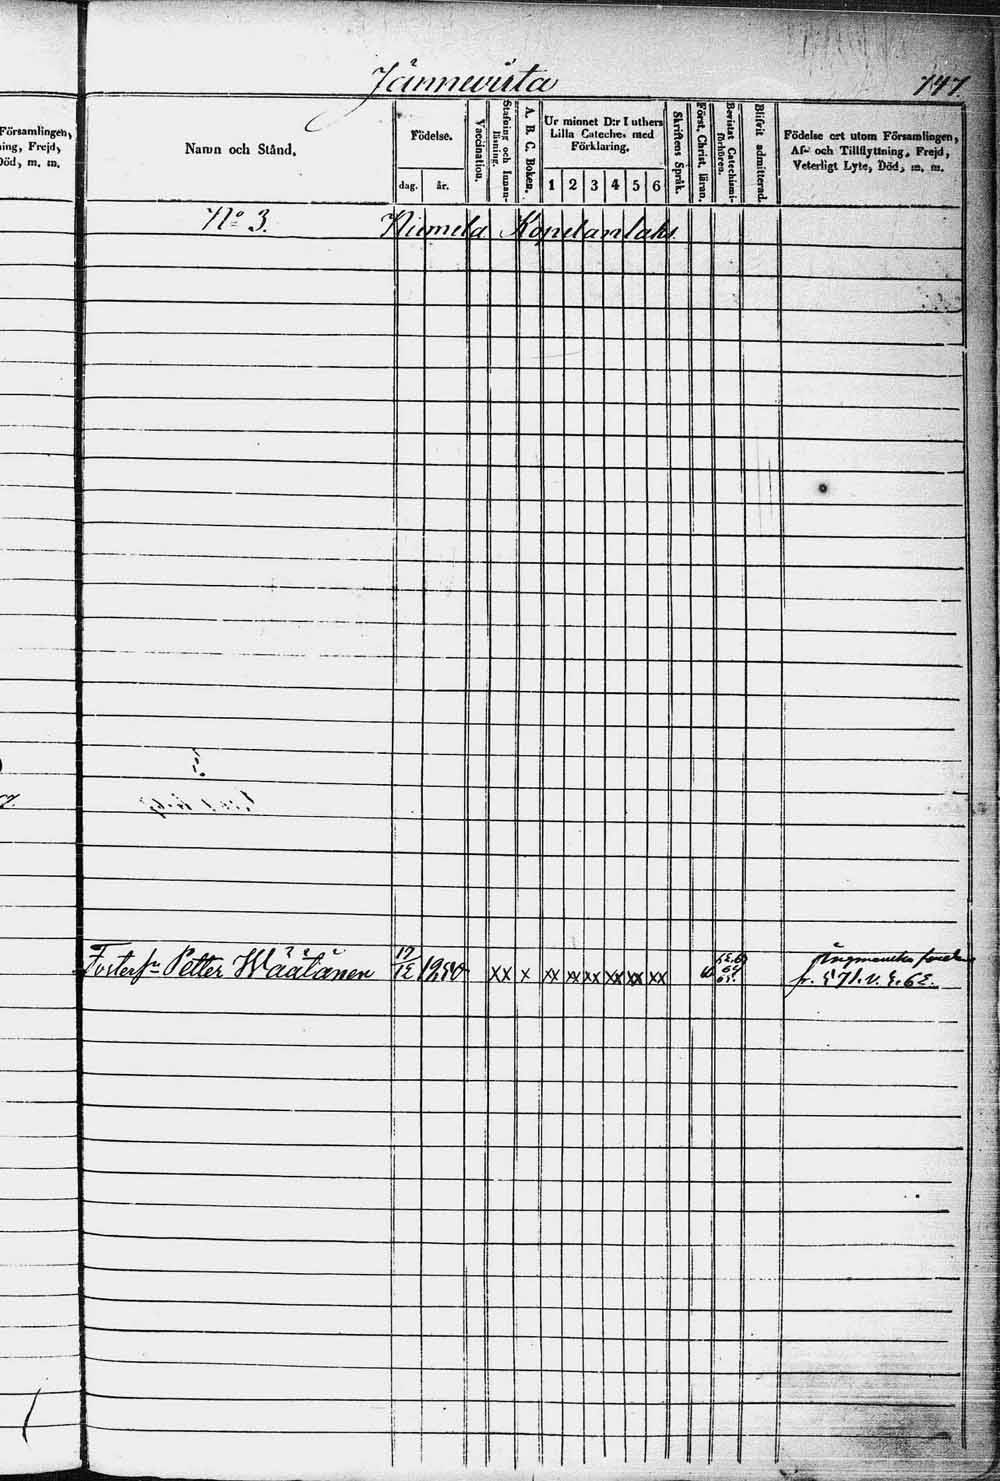 Jännevirta
747
Församlingen,
ing, Frejd,
Död, m. m.
Namn och Stånd.
Födelse.
dag.
år.
Vaccination.
Stafning och Innan-
läsning.
A. B. C. Boken.
Ur minnet D:r Luthers
Lilla Cateches med
Förklaring.
1 2 3 4 5 6
Skriftens Språk.
Först. Christ. läran.
Bevistat Catechismi-
förhören.
Blifvit admitterad.
Födelse ort utom Församlingen,
Af- och Tillflyttning, Frejd,
Veterligt Lyte, Död, m. m.
No 3. Niemelä Kopelanlaks.
Fosters. Petter Wäätänen 17/12 1850 xx x xx xx xx xx xx xx